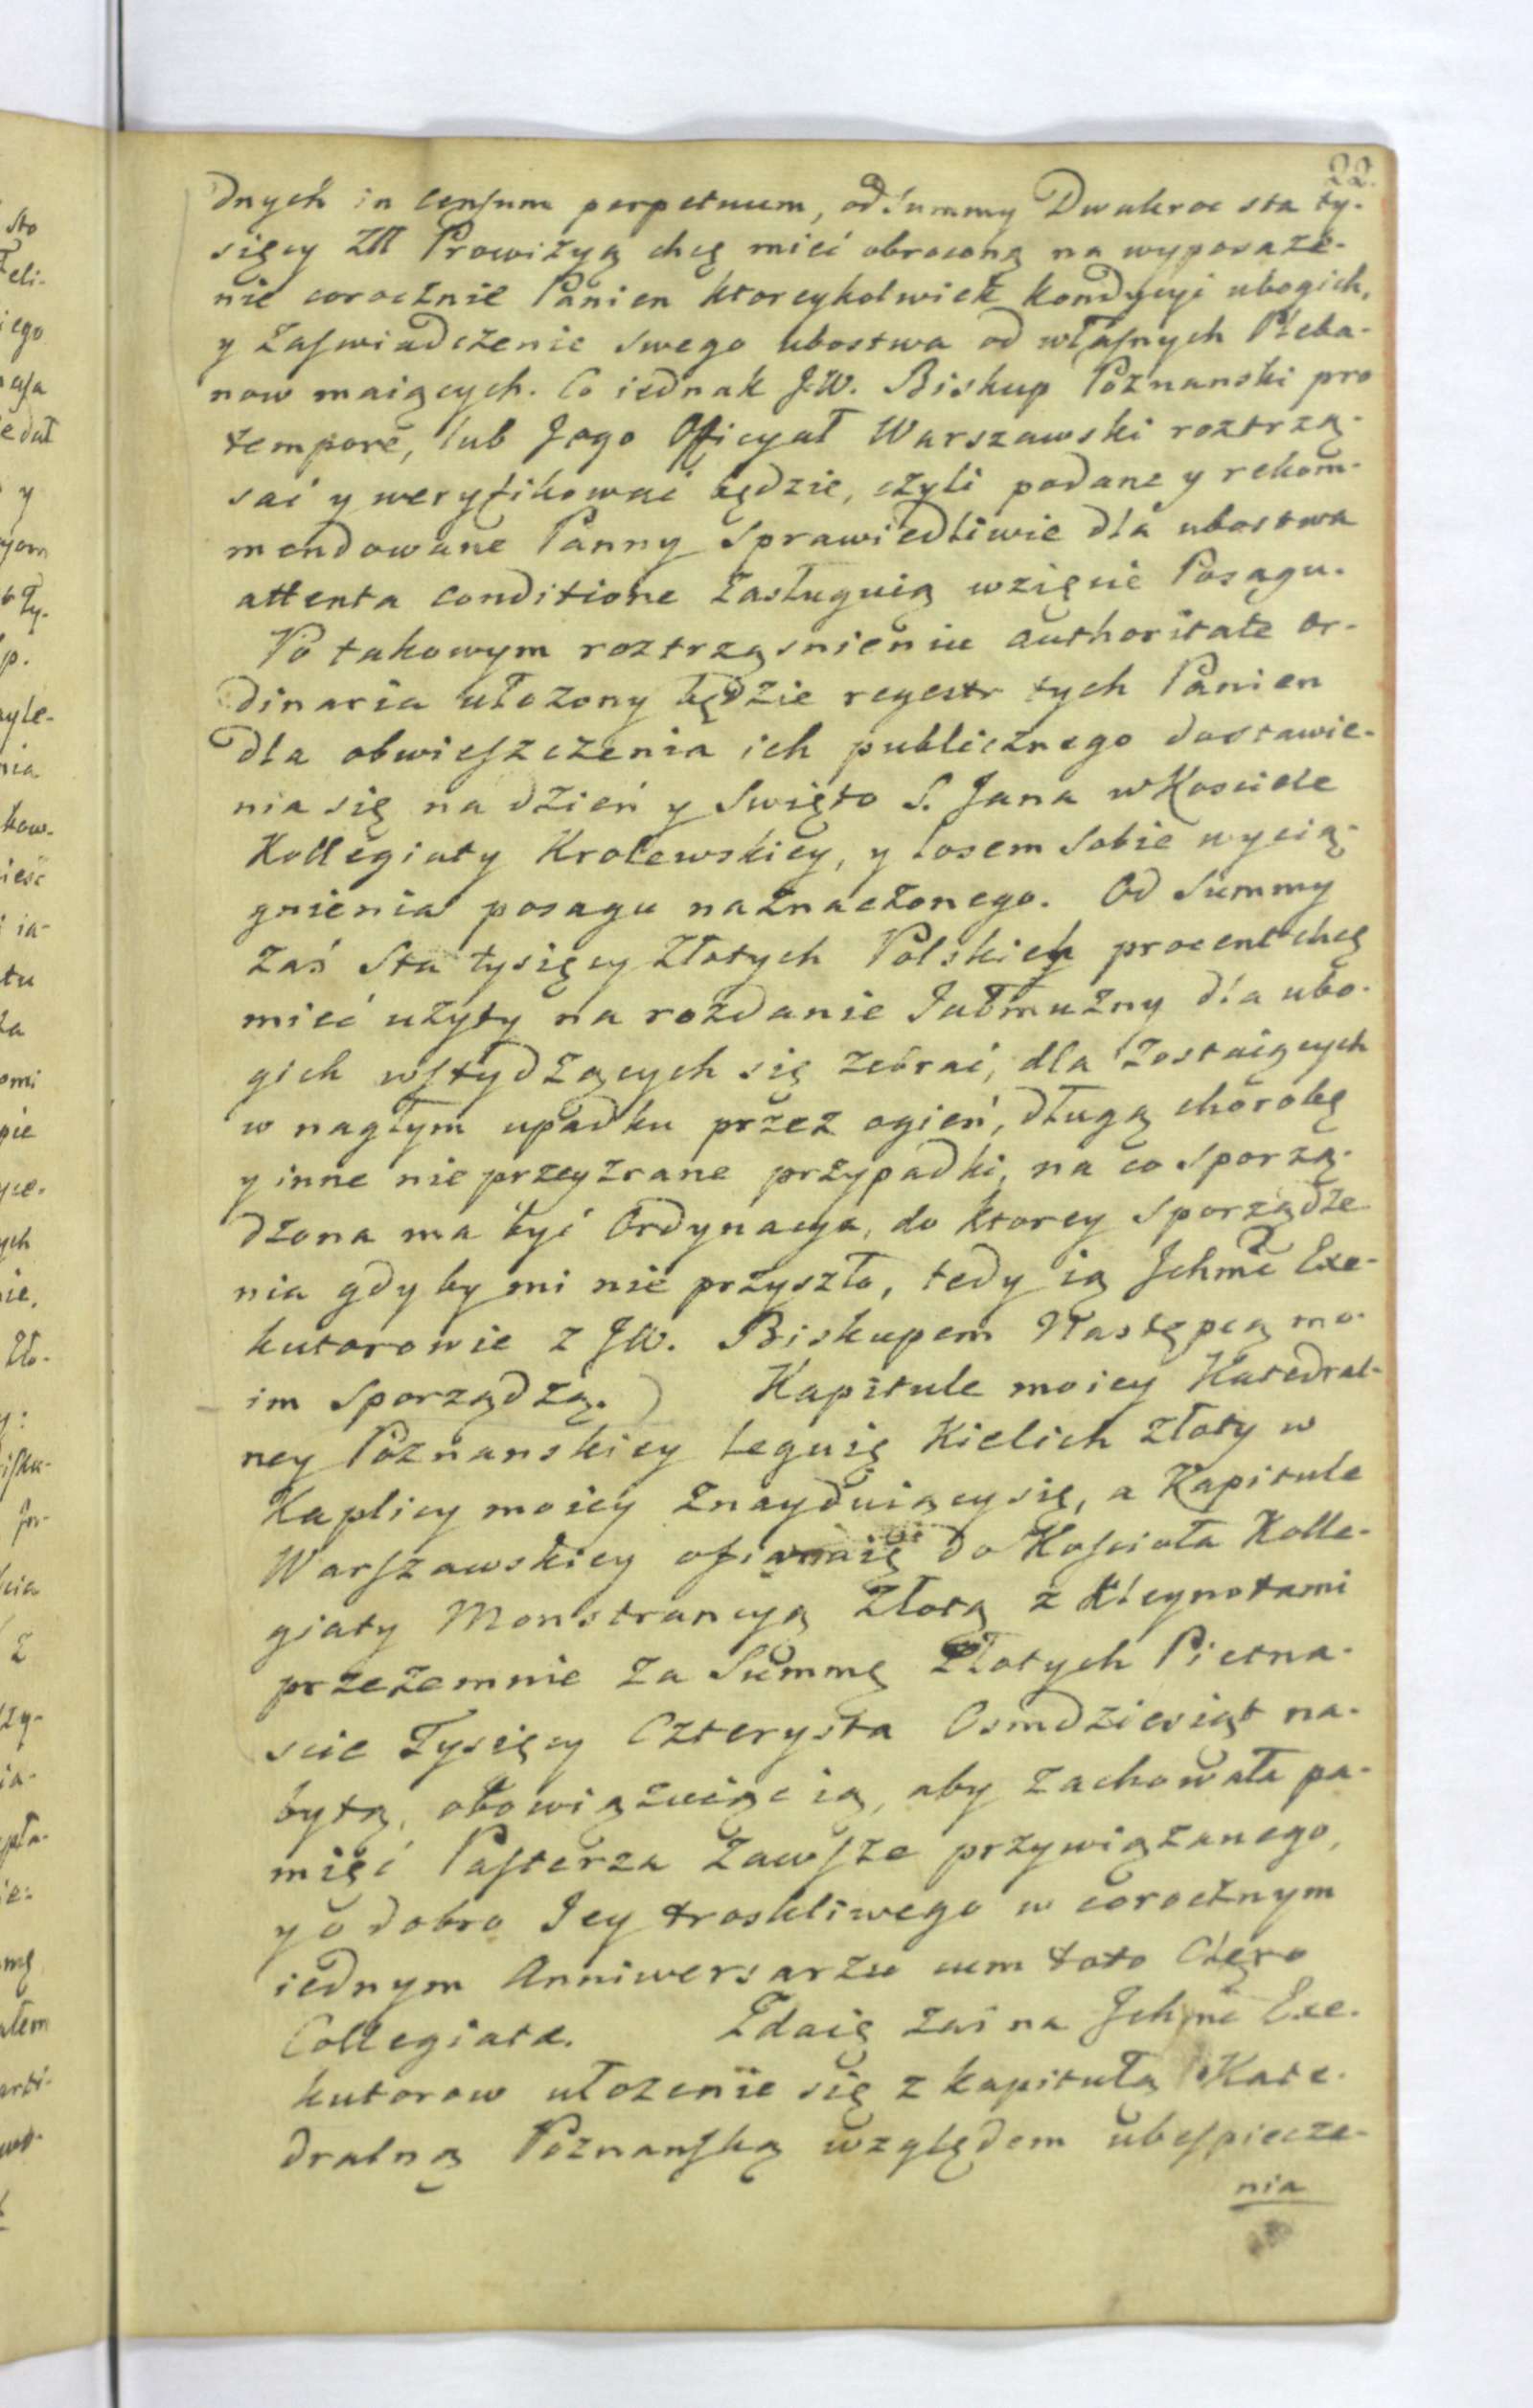 22.
dnych in censum perpetuum, od Summy Dwakroc sta ty-
sięcy Złł Prowizyą chcę mieć obroconą na wyposaże-
nie corocznie Panien ktoreykolwiek kondycyi ubogich,
y Zaswiadczenie swego ubostwa od własnych Pleba-
now maiących. Co iednak J.W. Biskup Poznanski pro
tempore, lub Jego Oficyał Warszawski roztrzą-
sać y weryfikować będzie, czyli podane y rekom-
mendowane Panny Sprawiedliwie dla ubostwa
attenta conditione Zasługuią wzięcie Posagu.
Po takowym roztrząsnieniu authoritate or-
dinaria ułożony będzie regestr tych Panien
dla obwieszczenia ich publicznego dostawie-
nia się na dzień y Swięto S. Jana w Kosciele
Kollegiaty Krolewskiey, y losem Sobie wycią-
gnienia posagu naznaczonego. Od Summy
Zaś Sta tysięcy Złotych Polskich procent chcę
mieć użyty na rozdanie Jałmużny dla ubo-
gich wstydzących się żebrać, dla Zostaiących
w nagłym upadku przez ogień, długą chorobę
y inne nie przeyzrane przypadki, na co sporzą-
dzona ma być Ordynacya, do ktorey sporządze
nia gdyby mi nie przyszło, tedy ią Jchmć Exe-
kutorowie z JW. Biskupem Następcą mo-
im sporządzą.) Kapitule moiey Katedral-
ney Poznanskiey leguię Kielich złoty w
Kaplicy moiey Znayduiący się, a Kapitule
Warszawskiey ofiaruię do Koscioła Kolle-
giaty Monstrancyą Złotą z Kleynotami
przezemnie za Summę Złotych Pietna-
scie Tysięcy Czterysta Osmdziesiąt na-
bytą, obowiązuiąc ią, aby zachowała pa-
mięć Pasterza Zawsze przywiązanego,
y o dobro Jey troskliwego w corocznym
iednym Anniwersarzu cum toto Clero
Collegiatæ. Zdaię Zaś na Jchmć Exe-
kutorow ułożenie się z kapitułą Kate-
dralną Poznanską względem ubespiecze-
nia